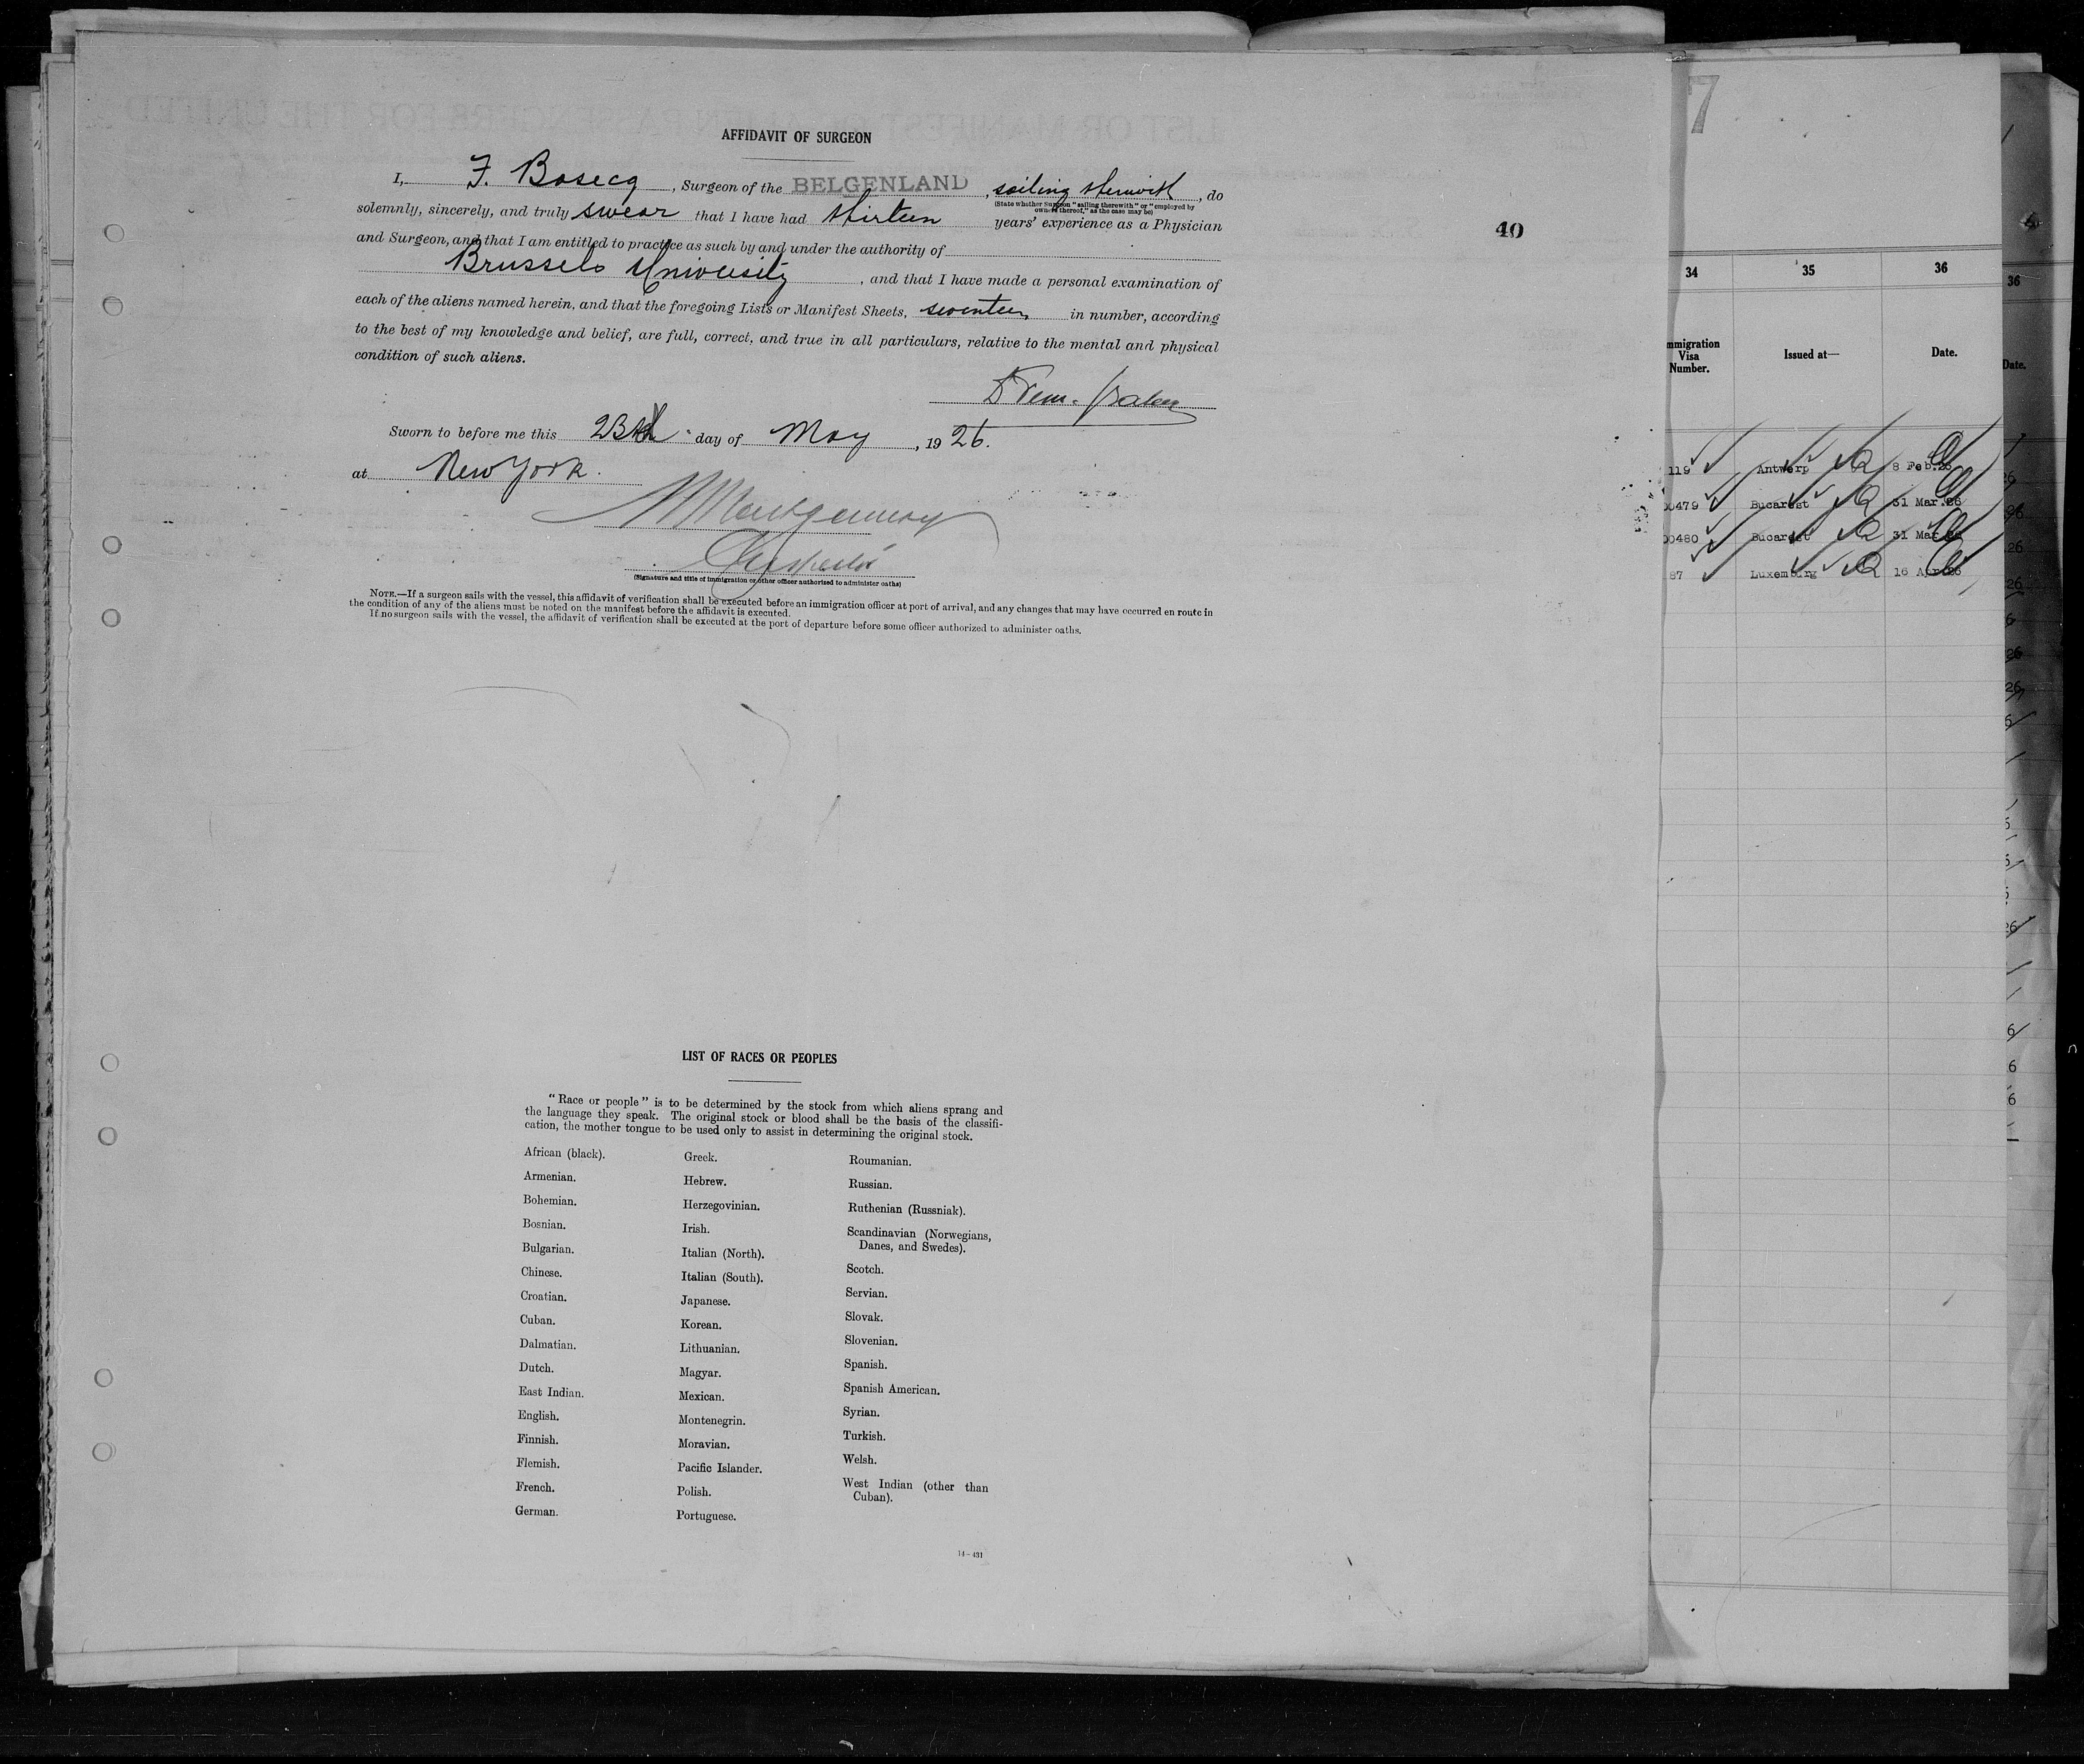 AFFIDAVIT OF SURGEON
I, F. Bosecq, Surgeon of the BELGENLAND, sailing therewith, do
(State whether Surgeon "sailing therewith" or "employed by
owners thereof," as the case may be)
solemnly, sincerely, and truly swear that I have had thirteen years' experience as a Physician
and Surgeon, and that I am entitled to practice as such by and under the authority of
Brussels University, and that I have made a personal examination of
each of the aliens named herein, and that the foregoing Lists or Manifest Sheets, seventeen in number, according
to the best of my knowledge and belief, are full, correct, and true in all particulars, relative to the mental and physical
condition of such aliens.
Sworn to before me this 23 day of May, 1926.
at New York.
Montgomery
Inspector
(Signature and title of immigration or other officer authorized to administer oaths)
NOTE.—If a surgeon sails with the vessel, this affidavit of verification shall be executed before an immigration officer at port of arrival, and any changes that may have occurred en route in
the condition of any of the aliens must be noted on the manifest before the affidavit is executed.
If no surgeon sails with the vessel, the affidavit of verification shall be executed at the port of departure before some officer authorized to administer oaths.
40
LIST OF RACES OR PEOPLES
"Race or people" is to be determined by the stock from which aliens sprang and
the language they speak. The original stock or blood shall be the basis of the classifi-
cation, the mother tongue to be used only to assist in determining the original stock.
African (black).
Armenian.
Bohemian.
Bosnian.
Bulgarian.
Chinese.
Croatian.
Cuban.
Dalmatian.
Dutch.
East Indian.
English.
Finnish.
Flemish.
French.
German.
Greek.
Hebrew.
Herzegovinian.
Irish.
Italian (North).
Italian (South).
Japanese.
Korean.
Lithuanian.
Magyar.
Mexican.
Montenegrin.
Moravian.
Pacific Islander.
Polish.
Portuguese.
Roumanian.
Russian.
Ruthenian (Russniak).
Scandinavian (Norwegians,
Danes, and Swedes).
Scotch.
Servian.
Slovak.
Slovenian.
Spanish.
Spanish American.
Syrian.
Turkish.
Welsh.
West Indian (other than
Cuban).
14-431
7
34 35 36
mmigration
Visa
Number.
Issued at—
Date.
119 Antwerp 8 Feb.26
00479 Bucarest 31 Mar.26
00480 Bucarest 31 Mar.26
87 Luxemburg 16 Apr.26
36
Date.